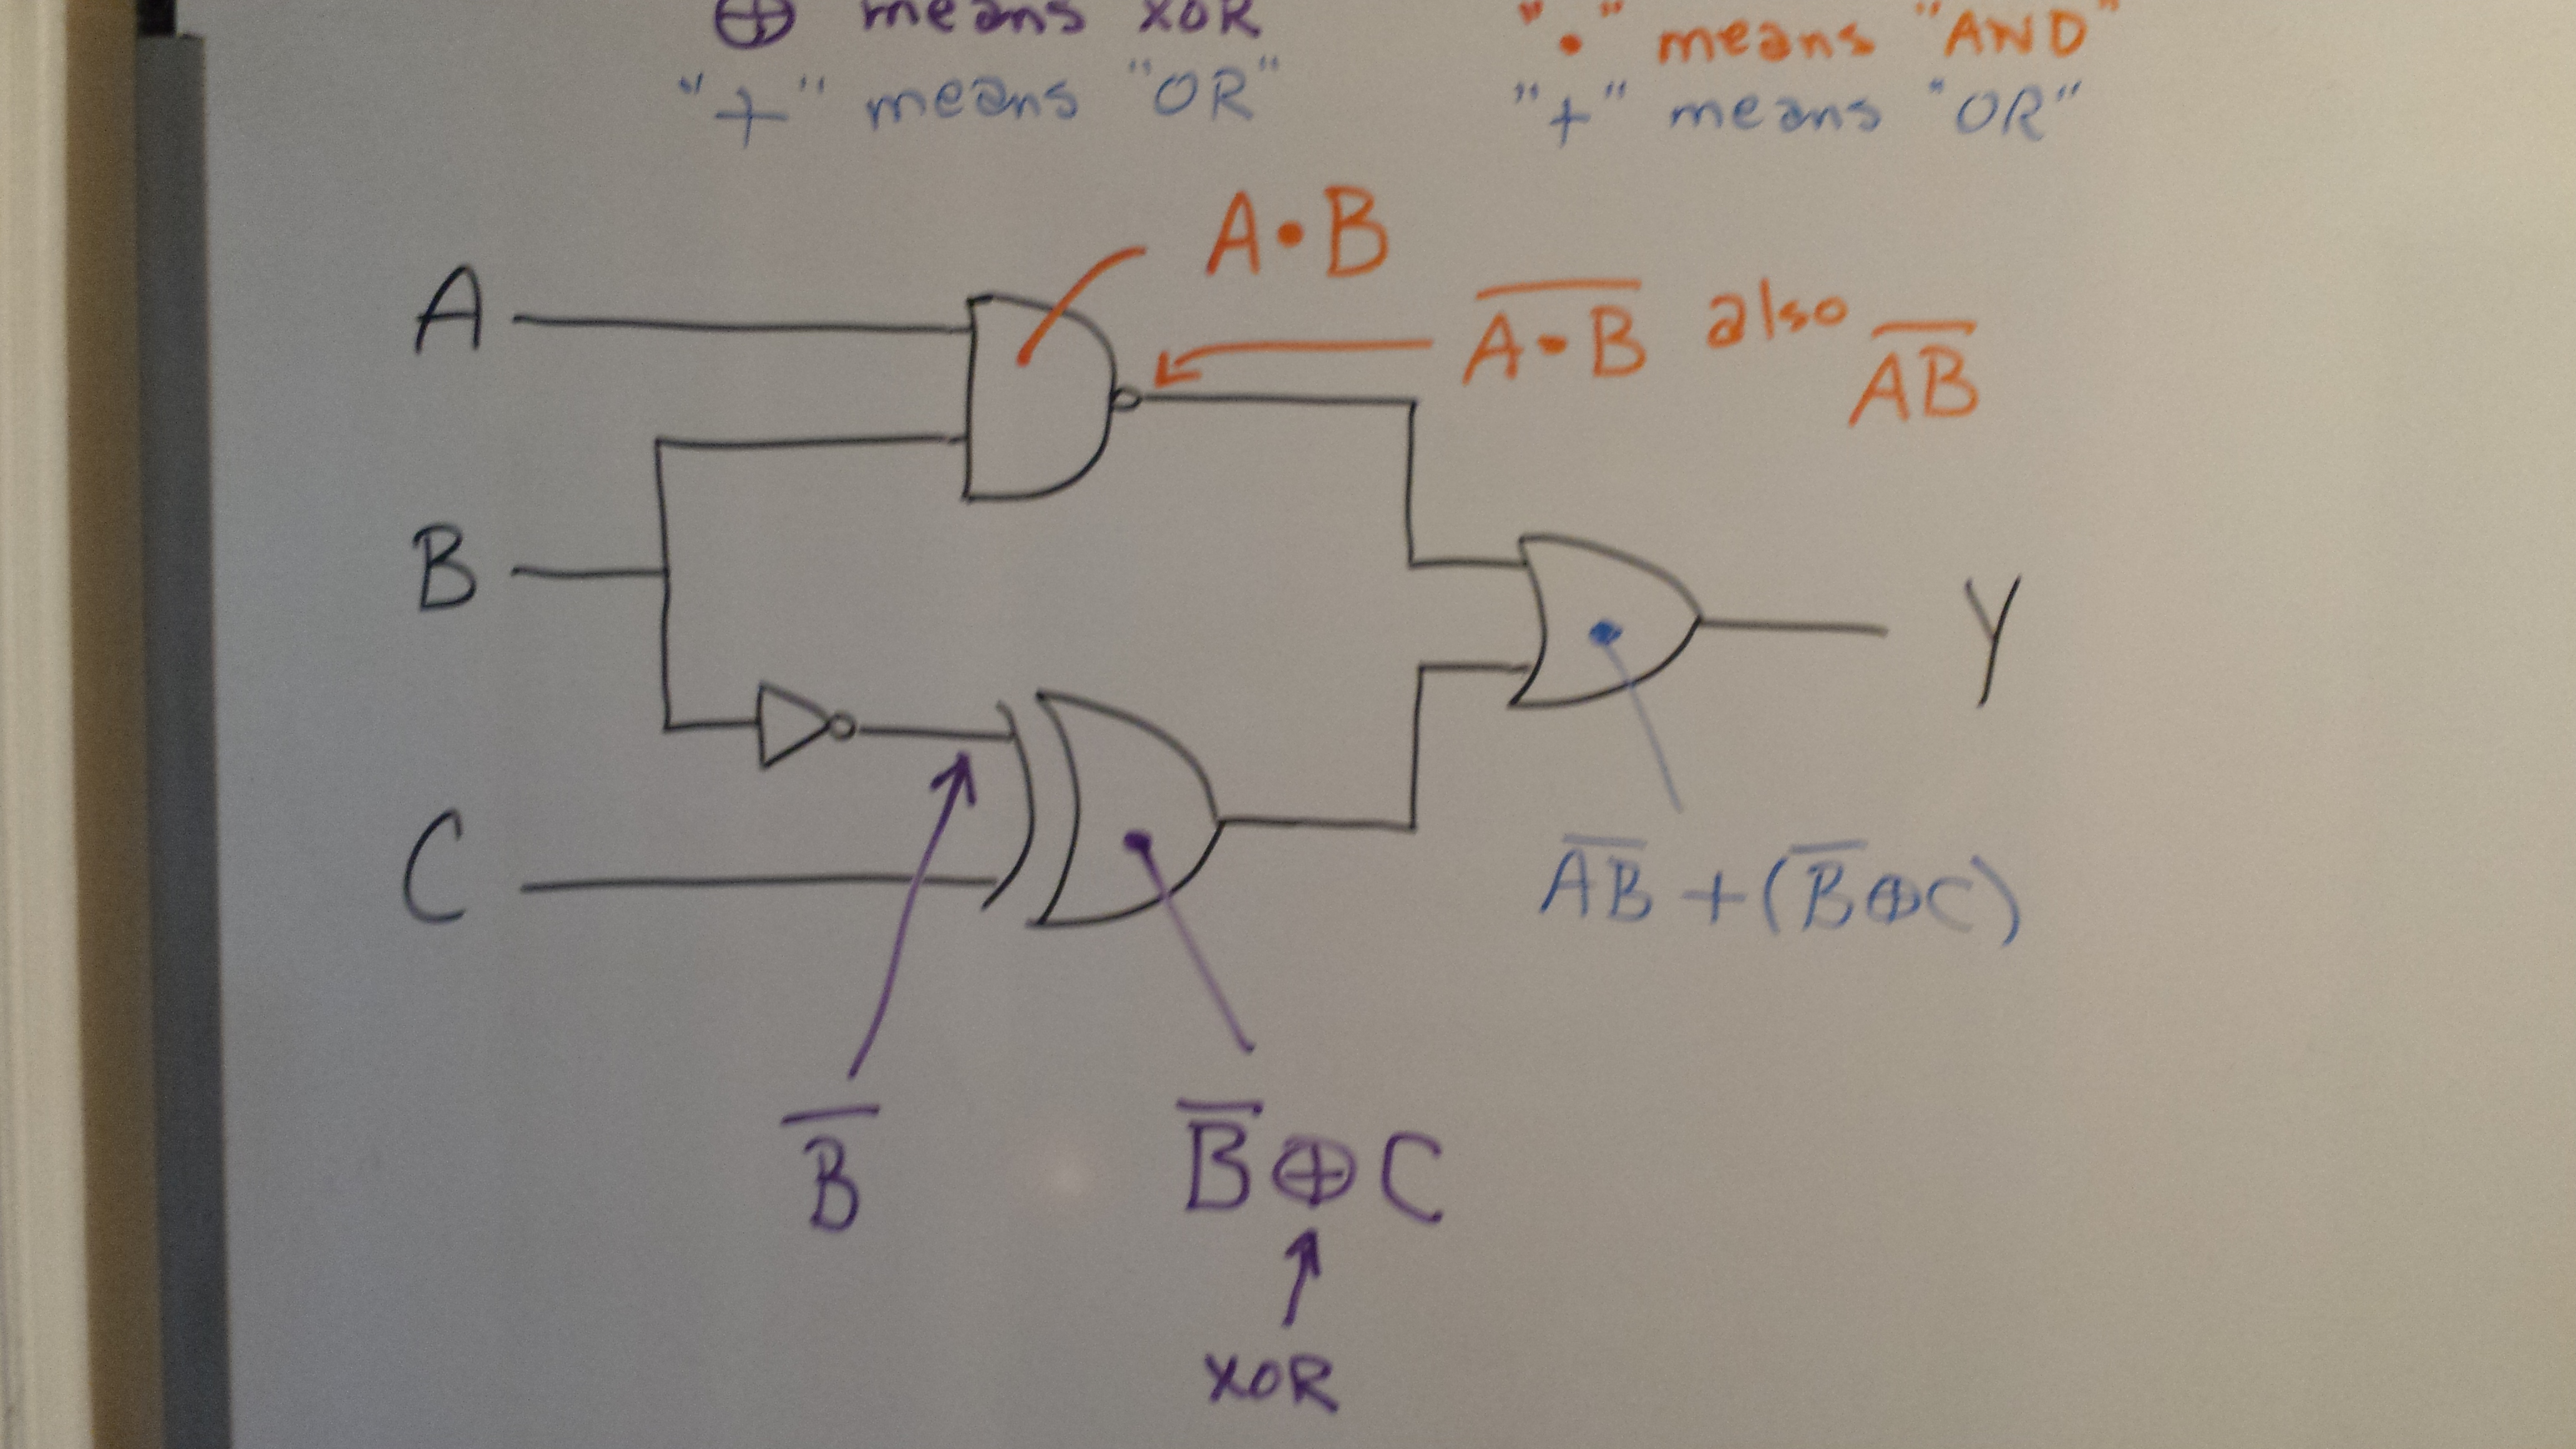 ⊕ means XOR
"+" means "OR"
"•" means "AND"
"+" means "OR"
A•B
A
A̅•̅B̅ also A̅B̅
B
Y
C
A̅B̅ + (B̅⊕C)
B̅
B̅⊕C
XOR